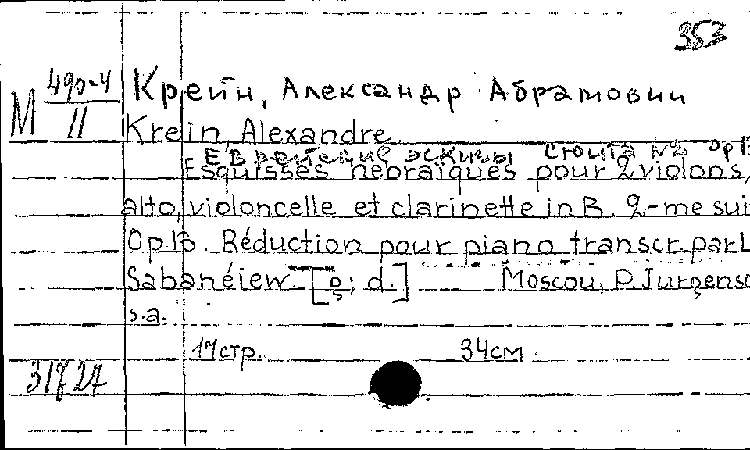 353
М 490-4
II
Крейн, Александр Абрамович
Krein, Alexandre
Еврейские эскизы Сюита №2 Op 13
Esquisses hébraïques pour 2 violons,
alto, violoncelle et clarinette in B. 2-me sui
Op 13. Réduction pour piano transcr. par L
Sabanéiew [ p. d.] Moscou, P. Jurgenso
s.a.
17 стр. 34 см.
31727